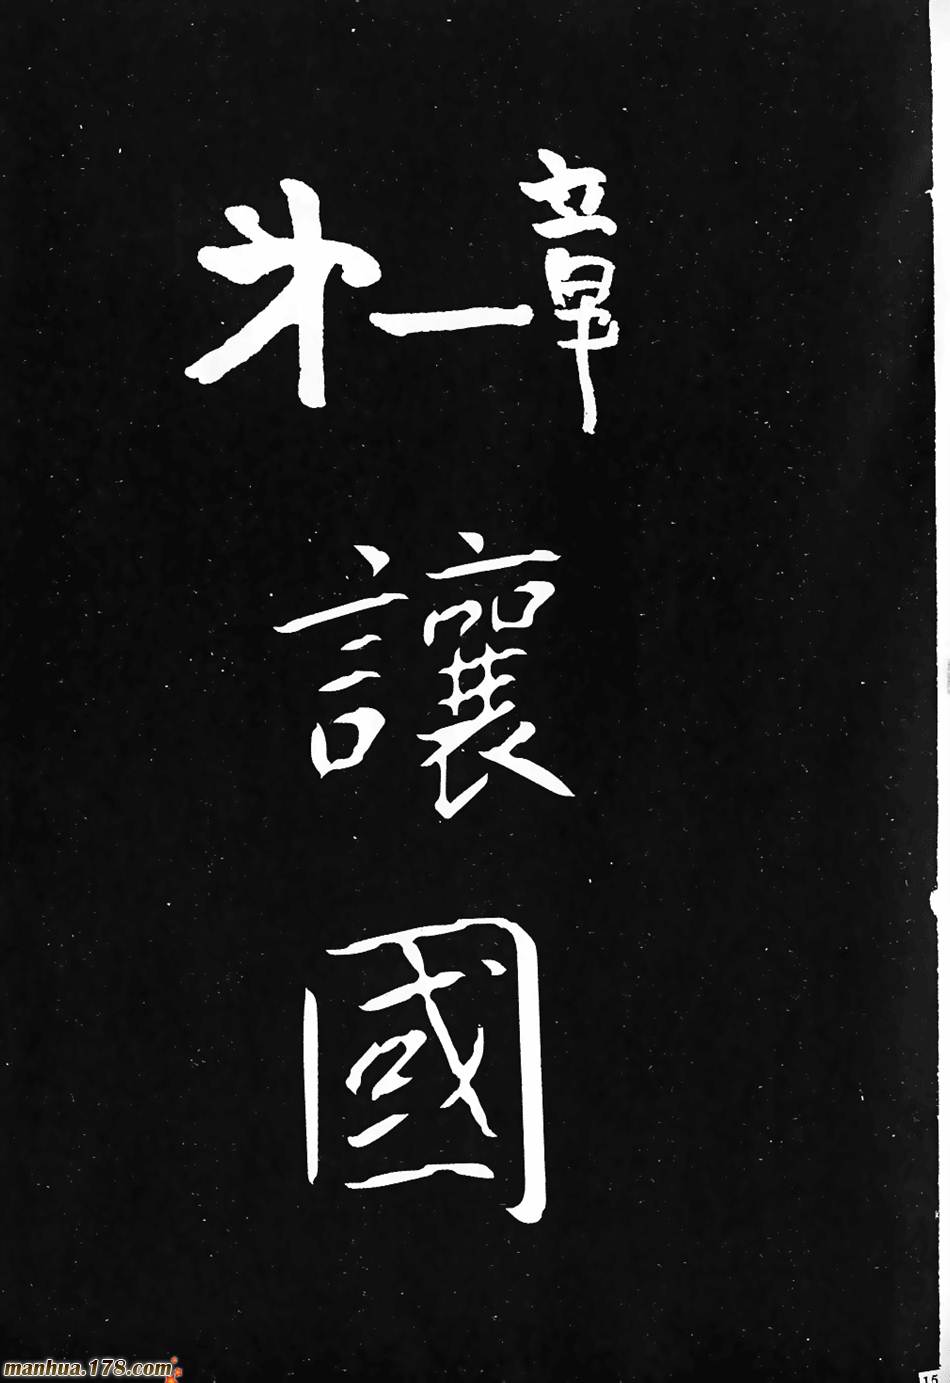 第一章
讓國
manhua.178.com
15